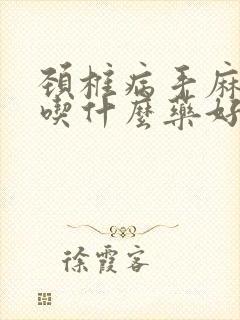 頸椎病手麻
喫什麼藥好
徐霞客